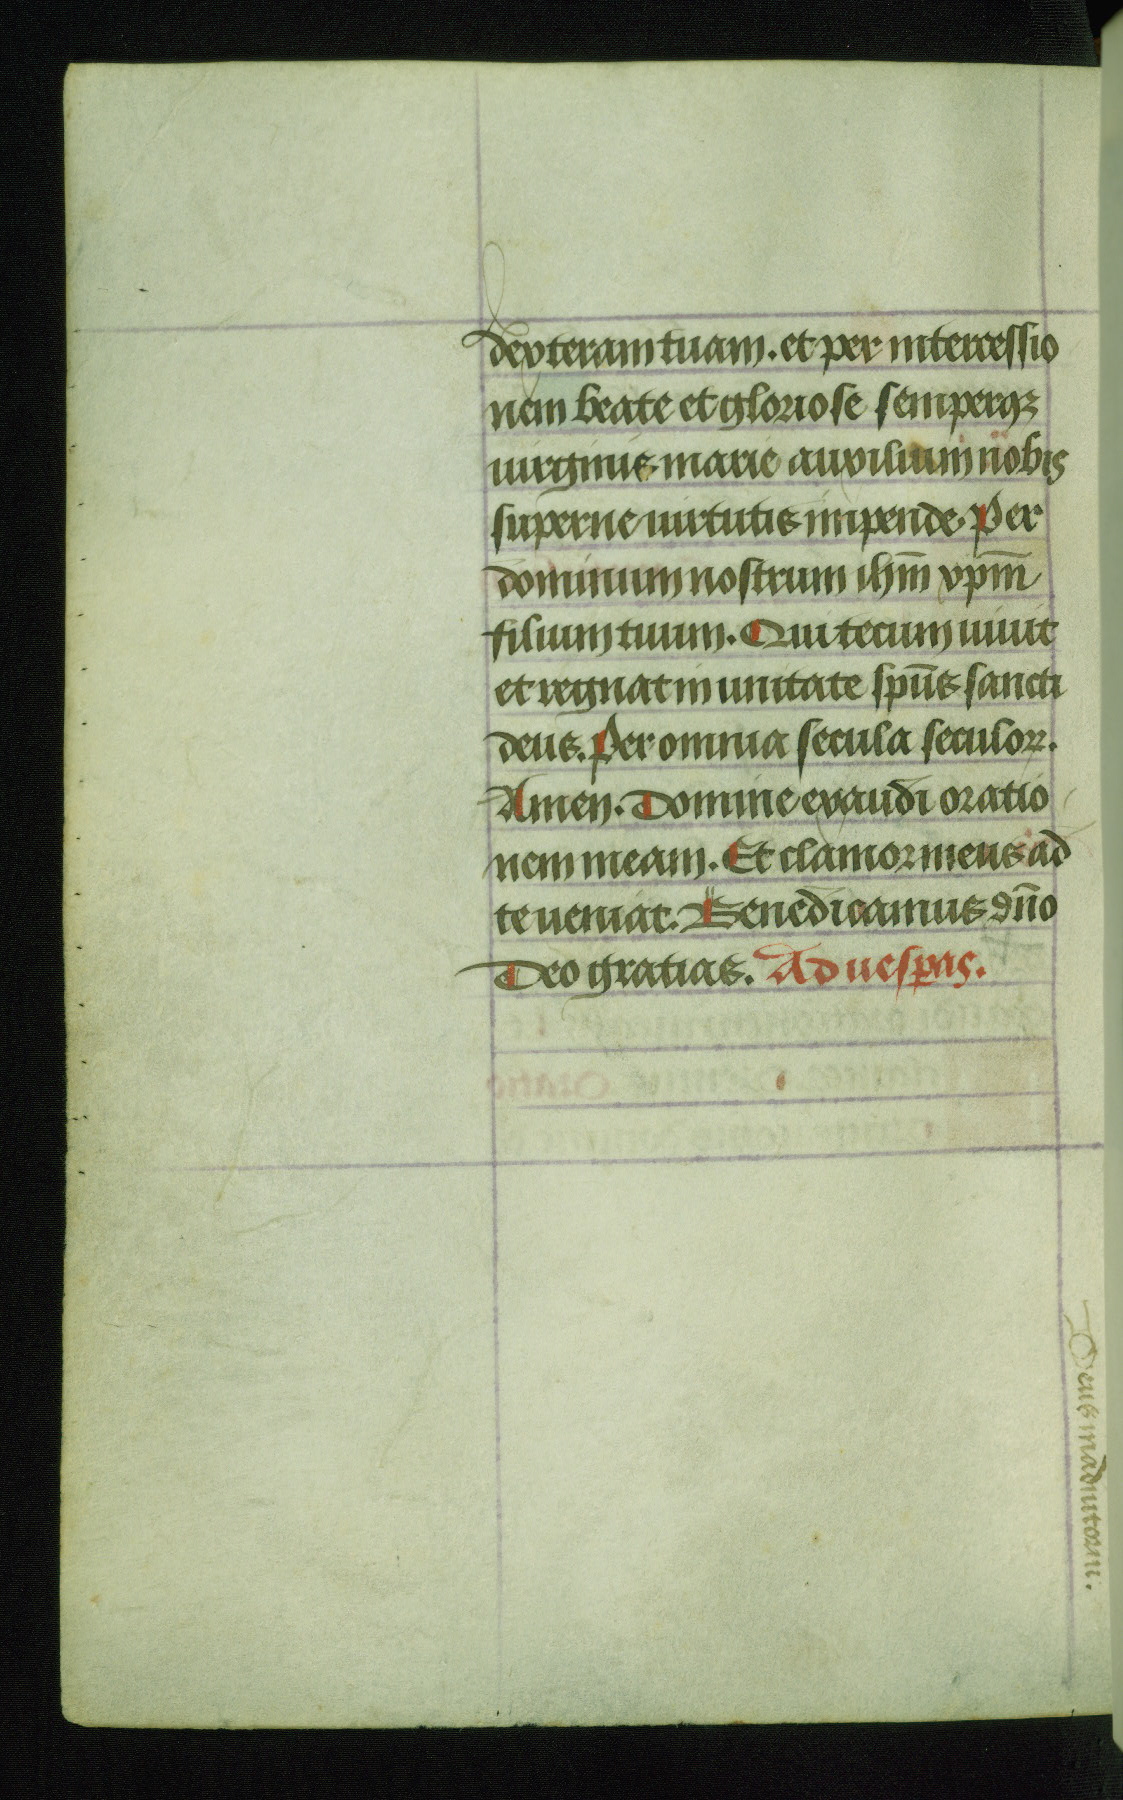 dexteram tuam. et per intercessio
nem beate et gloriose semperqꝫ
uirginis marie auxilium nobis
superne uirtutis impende. Per
dominum nostrum ihm̄ xpm̄
filium tuum. Qui tecum uiuit
et regnat in unitate spūs sancti
deus. Per omnia secula seculoꝝ.
Amen. Domine exaudi oratio
nem meam. Et clamor meus ad
te ueniat. Benedicamus dn̄o
Deo gratias. Ad uesꝑas.
Deus in adiutoriu.